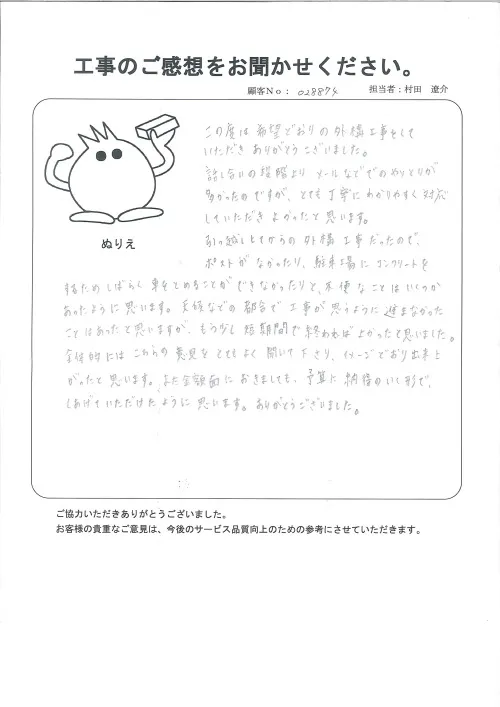 工事のご感想をお聞かせください。
顧客No： 028874 担当者：村田 遼介
この度は希望どおりの外構工事をして
いただきありがとうございました。
話し合いの段階より メールなどでのやりとりが
多かったのですが、とても丁寧にわかりやすく対応
していただきよかったと思います。
引っ越し上てからの外構工事だったので、
ポストがなかったり、駐車場にコンクリートを
するためしばらく車をとめることができなかったりと、不便なことはいくつか
あったように思います。天候などの都合で工事が思うように進まなかった
ことはあったと思いますが、もう少し短期間で終われば上かったと思いました。
全体的にはこちらの意見をとてもよく聞いて下さり、イメージどおり出来上
がったと思います。また金額面におきましても、予算に納得のいく形で、
しあげていただけたように思います。ありがとうございました。
ぬりえ
ご協力いただきありがとうございました。
お客様の貴重なご意見は、今後のサービス品質向上のための参考にさせていただきます。